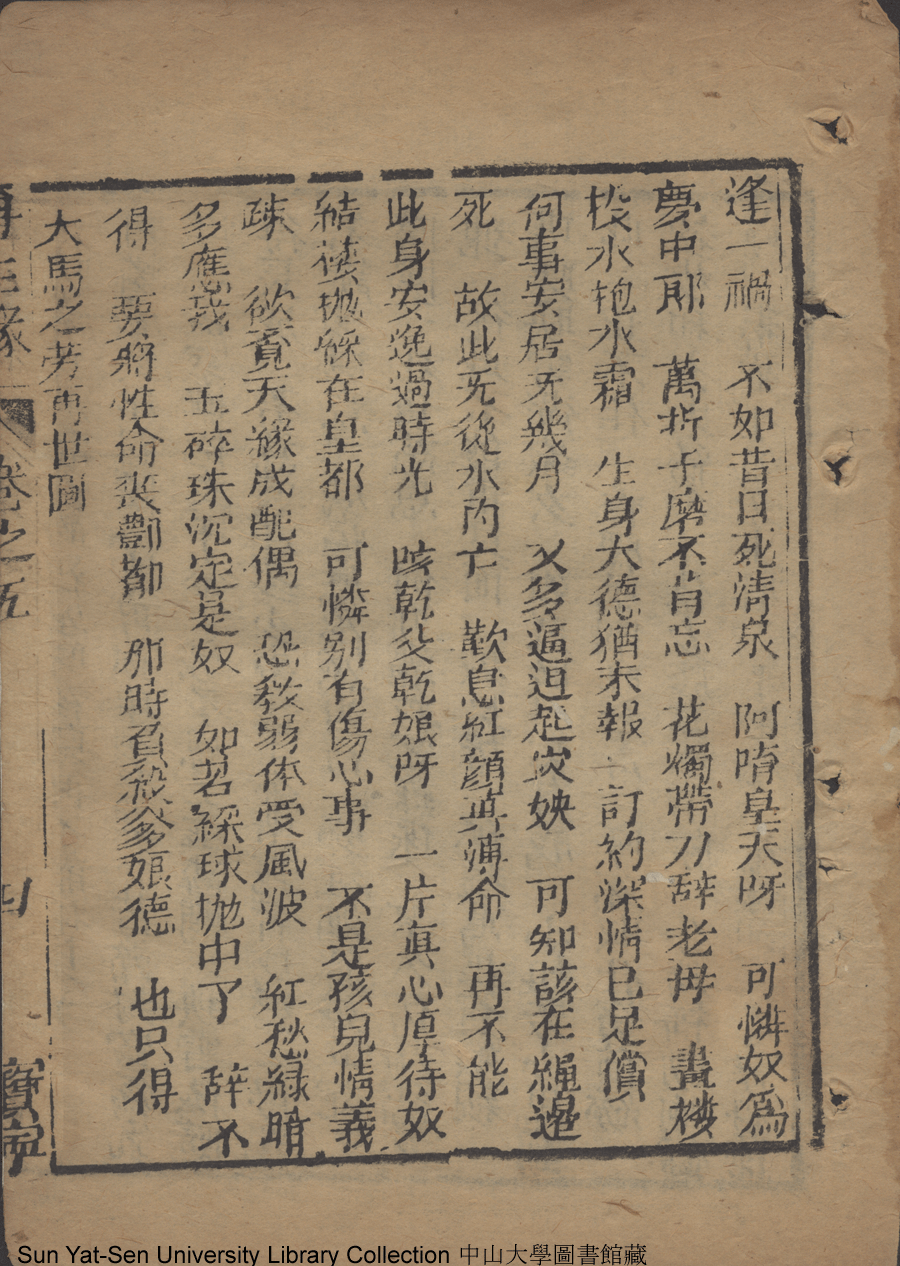 逢一禍 不如昔日死清泉 阿唷皇天呀 可憐奴爲
夢中耶 萬折千磨不肯忘 花燭帶刀辞老母 畫樓
投水抱水霜 生身大德猶未報 訂約深情已足償
何事安居旡幾月 又多逼迫起灾殃 可知該在繩邉
死 故此旡從水内亡 歎息紅顔真薄命 再不能
此身安逸過時光 咳乾父乾娘呀 一片真心厚待奴
結蔞抛綵在皇都 可憐别有傷心事 不是孩兒情義
疎 欲覔天緣成配偶 恐教弱体受風波 紅愁緑暗
多應我 玉碎珠沉定是奴 如若綵球抛中了 辞不
得 要將性命喪酆都 那時負殺爹娘德 也只得
犬馬之劳再世圖
再生緣 卷之五 四 寳寧
Sun Yat-Sen University Library Collection 中山大學圖書館藏